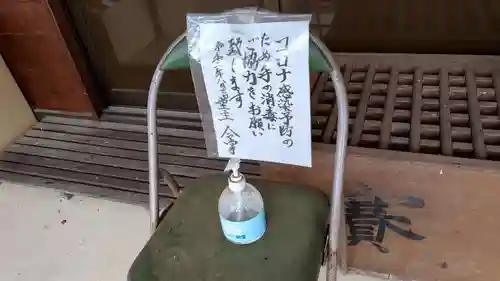 コロナ感染予防の
ため手の消毒に
ご協力をお願い
致します
令和二年 合掌